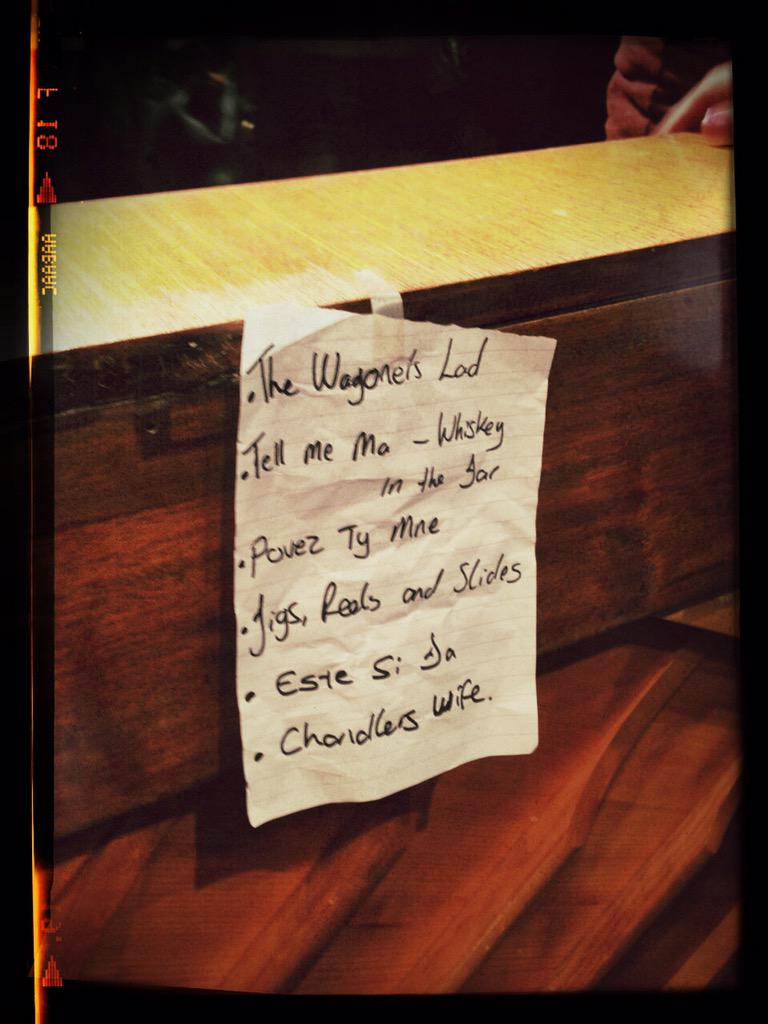 .The Wagoner's Lad
.Tell me Ma - Whiskey
in the Jar
.Povez Ty Mne
.Jigs, Reels and Slides
. Este Si Ja
. Chandlers Wife.